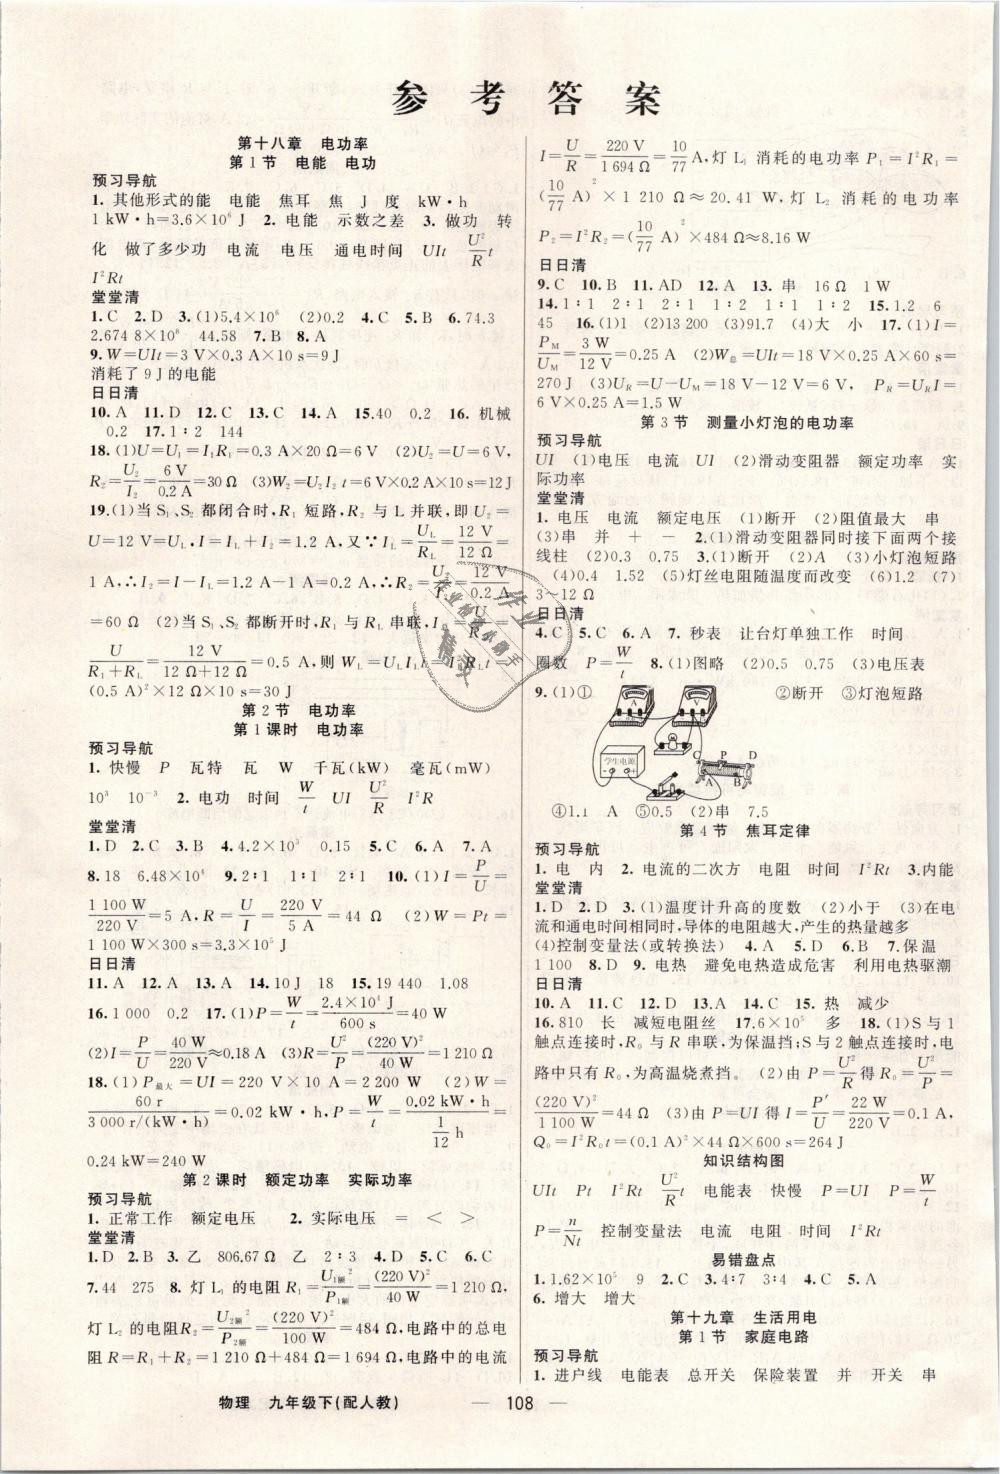 参考答案
第十八章 电功率
第1节 电能 电功
预习导航
1. 其他形式的能 电能 焦耳 焦 J 度 kW·h
1 kW·h=3.6×10⁶ J 2. 电能 示数之差 3. 做功 转
化 做了多少功 电流 电压 通电时间 UIt U²/R t
I²Rt
堂堂清
1. C 2. D 3. (1)5.4×10⁶ (2)0.2 4. C 5. B 6. 74.3
2.674 8×10⁸ 44.58 7. B 8. A
9. W=UIt=3 V×0.3 A×10 s=9 J
消耗了 9 J 的电能
日日清
10. A 11. D 12. C 13. C 14. A 15. 40 0.2 16. 机械
0.2 17. 1∶2 144
18. (1)U=U₁=I₁R₁=0.3 A×20 Ω=6 V (2)U₂=U=6 V,
R₂=U₂/I₂=6 V/0.2 A=30 Ω (3)W₂=U₂I₂t=6 V×0.2 A×10 s=12 J
19. (1)当 S₁、S₂ 都闭合时,R₁ 短路,R₂ 与 L 并联,即 U₂=
U=12 V=U_L,I=I_L+I₂=1.2 A,又∵I_L=U_L/R_L=12 V/12 Ω=
1 A,∴I₂=I-I_L=1.2 A-1 A=0.2 A,∴R₂=U₂/I₂=12 V/0.2 A
=60 Ω (2)当 S₁、S₂ 都断开时,R₁ 与 R_L 串联,I_L=U/R=
U/(R₁+R_L)=12 V/(12 Ω+12 Ω)=0.5 A,则 W_L=U_LI_Lt=I²R_Lt=
(0.5 A)²×12 Ω×10 s=30 J
第2节 电功率
第1课时 电功率
预习导航
1. 快慢 P 瓦特 瓦 W 千瓦(kW) 毫瓦(mW)
10³ 10⁻³ 2. 电功 时间 W/t UI U²/R I²R
堂堂清
1. D 2. C 3. B 4. 4.2×10³ 0.15 5. C 6. A 7. A
8. 18 6.48×10⁴ 9. 2∶1 1∶1 2∶1 10. (1)I=P/U=
1 100 W/220 V=5 A,R=U/I=220 V/5 A=44 Ω (2)W=Pt=
1 100 W×300 s=3.3×10⁵ J
日日清
11. A 12. A 13. A 14. 10 J 18 15. 19 440 1.08
16. 1 000 0.2 17. (1)P=W/t=2.4×10⁴ J/600 s=40 W
(2)I=P/U=40 W/220 V≈0.18 A (3)R=U²/P=(220 V)²/40 W=1 210 Ω
18. (1)P最大=UI=220 V×10 A=2 200 W (2)W=
60 r/3 000 r/(kW·h)=0.02 kW·h,P=W/t=0.02 kW·h/(1/12 h)=
0.24 kW=240 W
第2课时 额定功率 实际功率
预习导航
1. 正常工作 额定电压 2. 实际电压 = < >
堂堂清
1. D 2. B 3. 乙 806.67 Ω 乙 2∶3 4. D 5. C 6. C
7. 44 275 8. 灯 L₁ 的电阻 R₁=U₁额²/P₁额=(220 V)²/40 W=1 210 Ω,
灯 L₂ 的电阻R₂=U₂额²/P₂额=(220 V)²/100 W=484 Ω,电路中的总电
阻 R=R₁+R₂=1 210 Ω+484 Ω=1 694 Ω,电路中的电流
I=U/R=220 V/1 694 Ω=10/77 A,灯 L₁ 消耗的电功率 P₁=I²R₁=
(10/77 A)²×1 210 Ω≈20.41 W,灯 L₂ 消耗的电功率
P₂=I²R₂=(10/77 A)²×484 Ω≈8.16 W
日日清
9. C 10. B 11. AD 12. A 13. 串 16 Ω 1 W
14. 1∶1 2∶1 2∶1 1∶2 1∶1 1∶2 15. 1.2 6
45 16. (1)1 (2)13 200 (3)91.7 (4)大 小 17. (1)I=
P_M/U_M=3 W/12 V=0.25 A (2)W总=UIt=18 V×0.25 A×60 s=
270 J (3)U_R=U-U_M=18 V-12 V=6 V, P_R=U_RI=
6 V×0.25 A=1.5 W
第3节 测量小灯泡的电功率
预习导航
UI (1)电压 电流 UI (2)滑动变阻器 额定功率 实
际功率
堂堂清
1. 电压 电流 额定电压 (1)断开 (2)阻值最大 串
(3)串 并 + - 2. (1)滑动变阻器同时接下面两个接
线柱 (2)0.3 0.75 3. (1)断开 (2)A (3)小灯泡短路
(4)0.4 1.52 (5)灯丝电阻随温度而改变 (6)1.2 (7)
3~12 Ω
日日清
4. C 5. C 6. A 7. 秒表 让台灯单独工作 时间
圈数 P=W/t 8. (1)图略 (2)0.5 0.75 (3)电压表
9. (1)① ②断开 ③灯泡短路
A V
学生电源
C P D
A B
④1.1 A ⑤0.5 (2)串 7.5
第4节 焦耳定律
预习导航
1. 电 内 2. 电流的二次方 电阻 时间 I²Rt 3. 内能
堂堂清
1. D 2. D 3. (1)温度计升高的度数 (2)小于 (3)在电
流和通电时间相同时,导体的电阻越大,产生的热量越多
(4)控制变量法(或转换法) 4. A 5. D 6. B 7. 保温
1 100 8. D 9. 电热 避免电热造成危害 利用电热驱潮
日日清
10. A 11. C 12. D 13. A 14. C 15. 热 减少
16. 810 长 减短电阻丝 17. 6×10⁵ 多 18. (1)S 与 1
触点连接时,R₀ 与 R 串联,为保温挡;S 与 2 触点连接时,电
路中只有 R₀,为高温烧煮挡。 (2)由 P=U²/R得 R₀=U²/P=
(220 V)²/1 100 W=44 Ω (3)由 P=UI 得 I=P′/U=22 W/220 V=0.1 A,
Q₀=I²R₀t=(0.1 A)²×44 Ω×600 s=264 J
知识结构图
UIt Pt I²Rt U²/R t 电能表 快慢 P=UI P=W/t
P=n/Nt 控制变量法 电流 电阻 时间 I²Rt
易错盘点
1. 1.62×10⁵ 9 2. C 3. 4∶7 3∶4 4. C 5. A
6. 增大 增大
第十九章 生活用电
第1节 家庭电路
预习导航
1. 进户线 电能表 总开关 保险装置 并 开关 串
物理 九年级下(配人教) — 108 —
作业检查小助手
作业
精灵